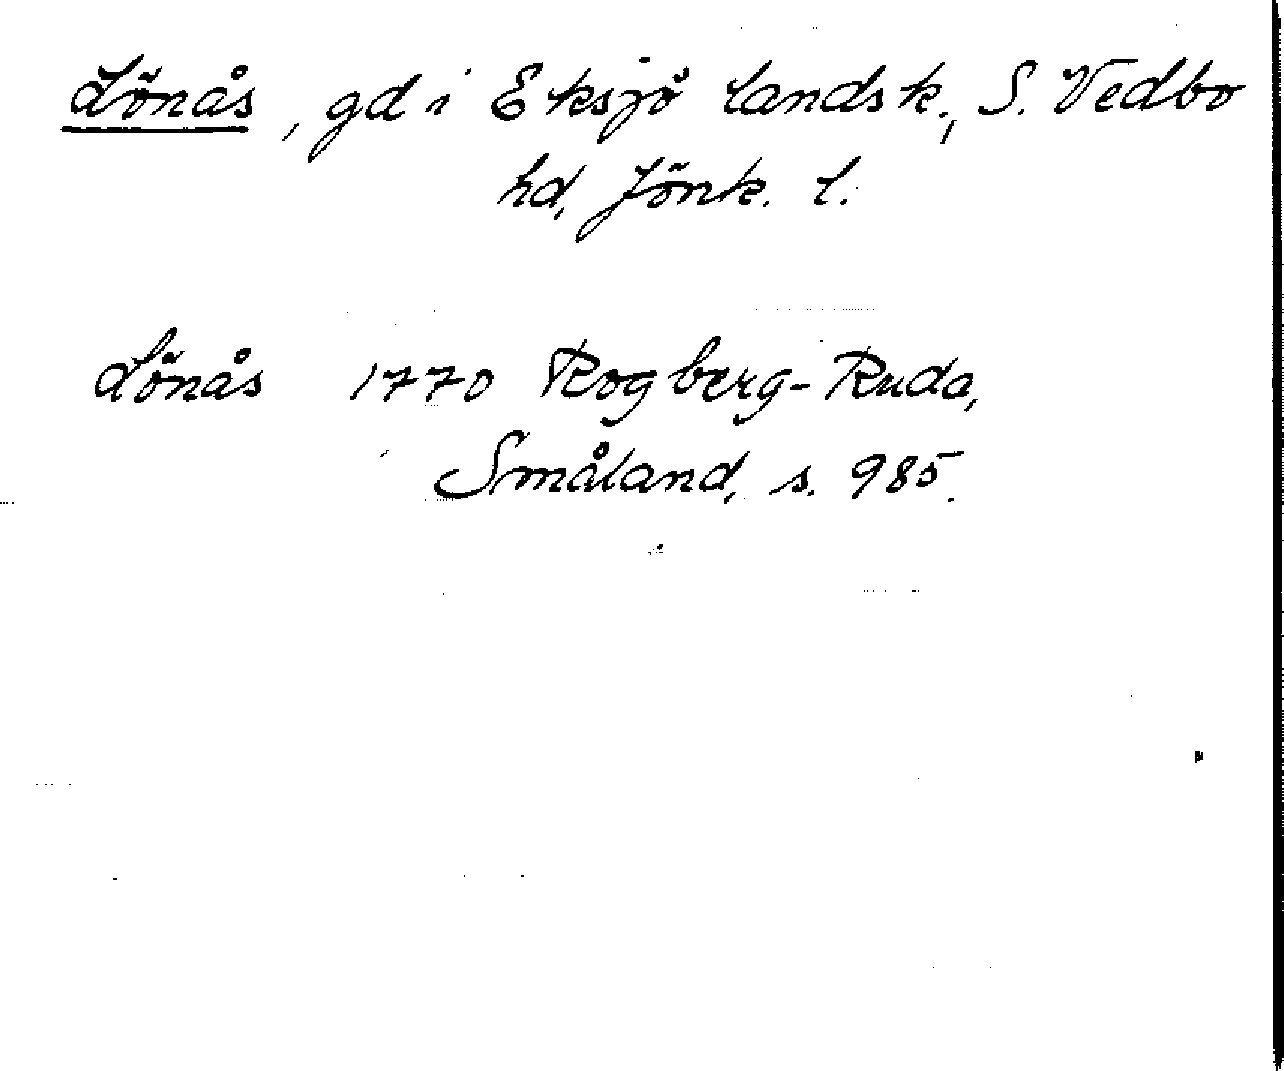 Lönås, gd i Eksjö landsk., S. Vedbo
hd, Jönk. l.
Lönås 1770 Rogberg-Ruda,
Småland, s. 985.